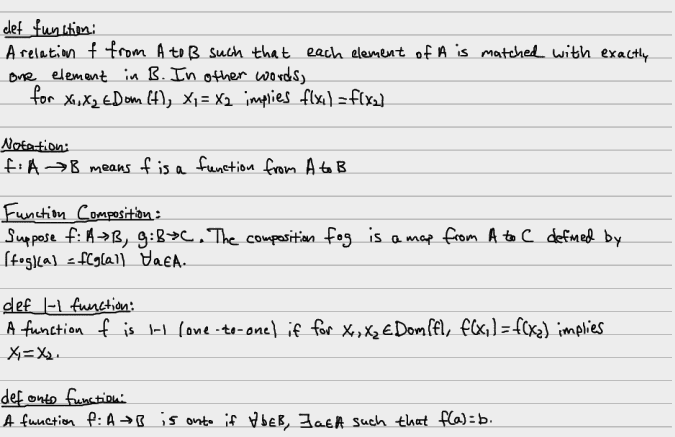 def function:
A relation f from A to B such that each element of A is matched with exactly
one element in B. In other words,
for x₁,x₂ ∈ Dom (f), x₁ = x₂ implies f(x₁) = f(x₂)
Notation:
f: A → B means f is a function from A to B
Function Composition:
Suppose f: A→B, g: B→C. The composition fog is a map from A to C defined by
(fog)(a) = f(g(a)) ∀a∈A.
def 1-1 function:
A function f is 1-1 (one-to-one) if for x₁,x₂ ∈ Dom(f), f(x₁) = f(x₂) implies
x₁=x₂.
def onto function:
A function f: A→B is onto if ∀b∈B, ∃a∈A such that f(a)=b.